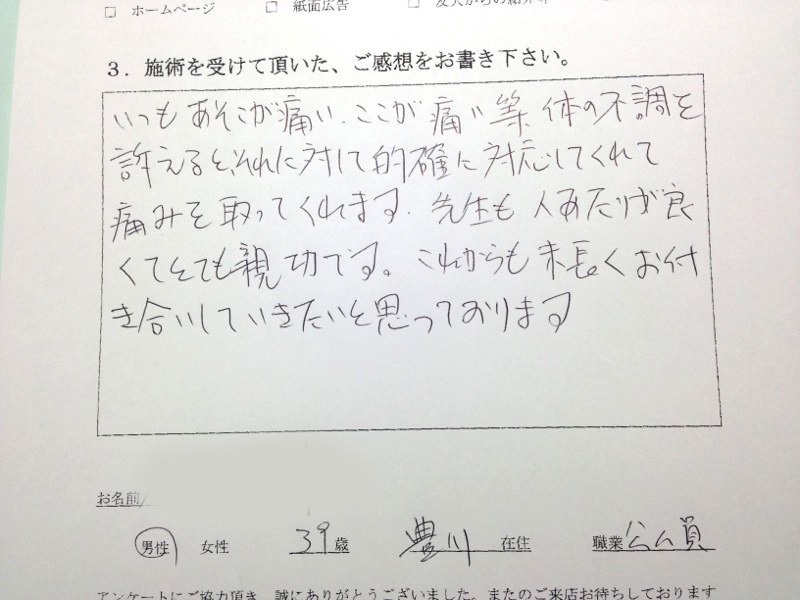 □ ホームページ □ 紙面広告 □ 友人からの紹介等
3．施術を受けて頂いた、ご感想をお書き下さい。
いつもあそこが痛い、ここが痛い等 体の不調を
訴えると、それに対して的確に対応してくれて
痛みを取ってくれます。先生も人あたりが良
くてとても親切です。これからも末長くお付
き合いしていきたいと思っております
お名前
男性 女性 39歳 豊川 在住 職業 公ム員
アンケートにご協力頂き、誠にありがとうございました。またのご来店お待ちしております